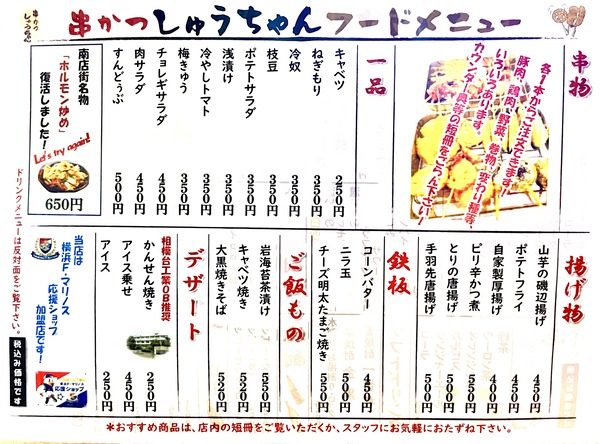 串かつ しゅうちゃん フードメニュー
串かつ
しゅうちゃん
串物
各1本からご注文できます！
豚肉、鶏肉、野菜、巻物、変わり種等、
いろいろあります。
カウンター、具等の短冊をごらん下さい！
一品
キャベツ 250円
ねぎもり 350円
冷奴 350円
枝豆 350円
ポテトサラダ 350円
浅漬け 350円
冷やしトマト 350円
梅きゅう 350円
チョレギサラダ 450円
肉サラダ 450円
すんどぅぶ 500円
南店街名物
「ホルモン炒め」
復活しました！
Let's try again!
650円
揚げ物
山芋の磯辺揚げ 450円
ポテトフライ 450円
自家製厚揚げ 400円
ピリ辛かつ煮 500円
とりの唐揚げ 550円
手羽先唐揚げ 500円
鉄板
コーンバター 450円
ニラ玉 500円
チーズ明太たまご焼き 550円
ご飯もの
岩海苔茶漬け 550円
キャベツ焼き 520円
大黒焼きそば 520円
デザート
相模台工業OB推奨
かんせん焼き 250円
アイス乗せ 450円
アイス 250円
当店は
横浜F・マリノス
応援ショップ
加盟店です！
応援ショップ
ドリンクメニューは反対面をご覧下さい。
税込み価格です
*おすすめ商品は、店内の短冊をご覧いただくか、スタッフにお気軽におたずね下さい。